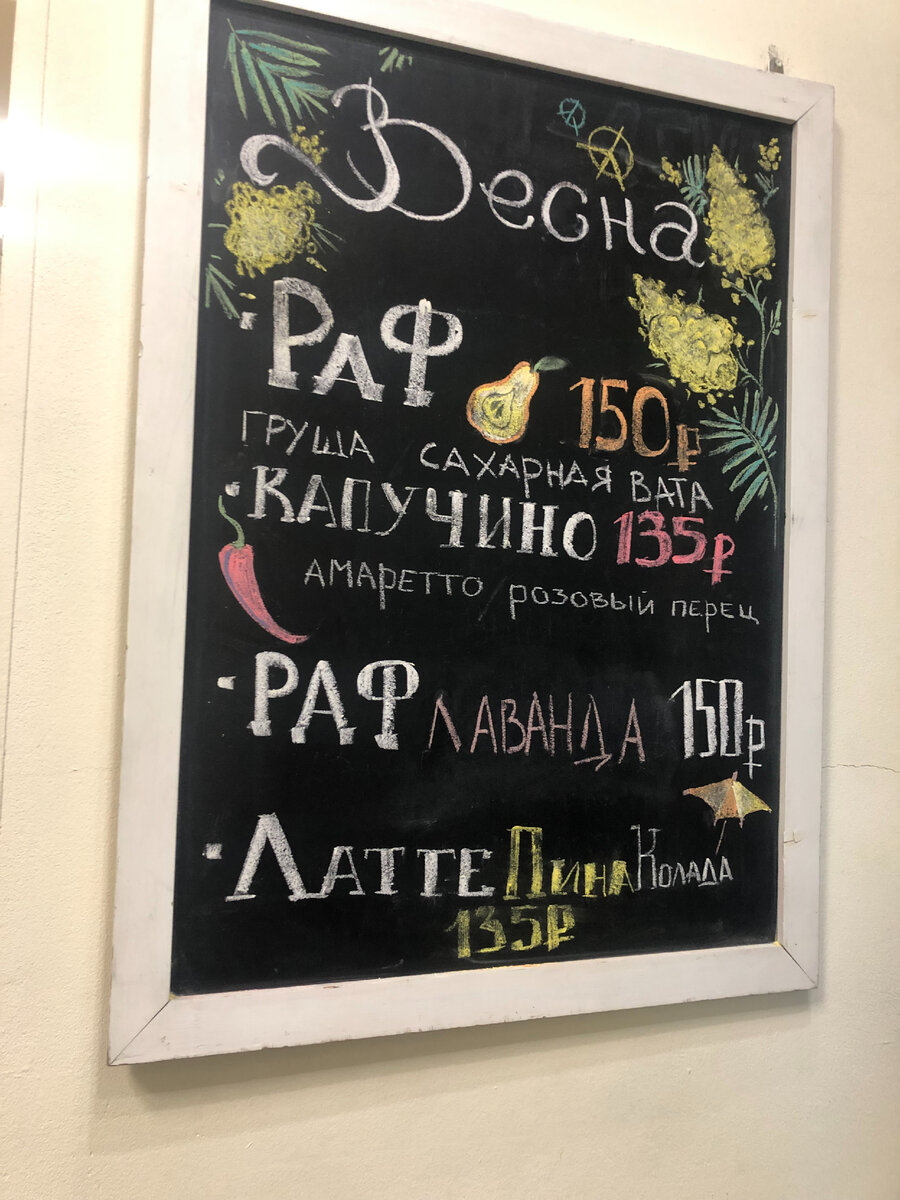 Весна
• Раф
150₽
ГРУША САХАРНАЯ ВАТА
• КАПУЧИНО 135₽
АМАРЕТТО РОЗОВЫЙ ПЕРЕЦ
• РАФ ЛАВАНДА 150₽
• ЛАТТЕ ПИНА КОЛАДА
135₽